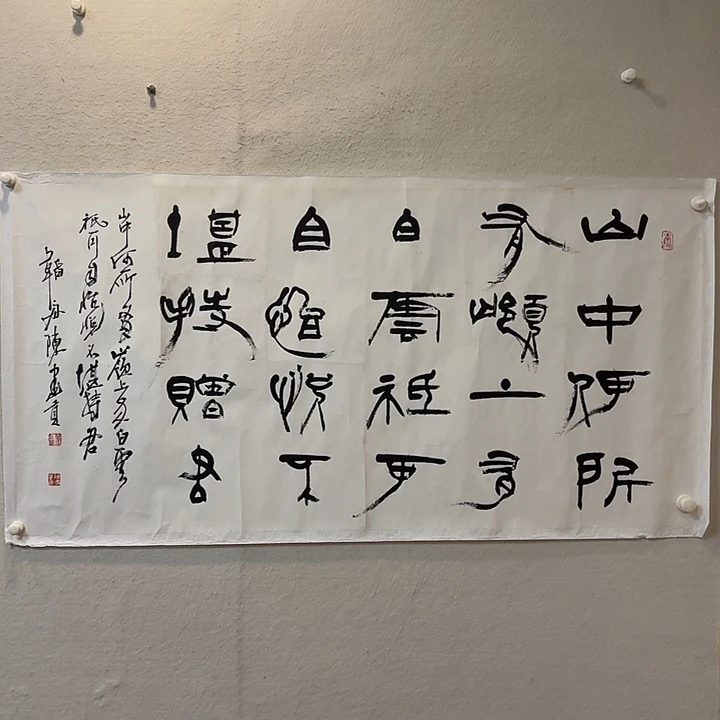 山中何所
有嶺上有
白雲祇可
自怡悅不
堪持贈君
山中何所有嶺上多白雲
祇可自怡悅不堪持贈君